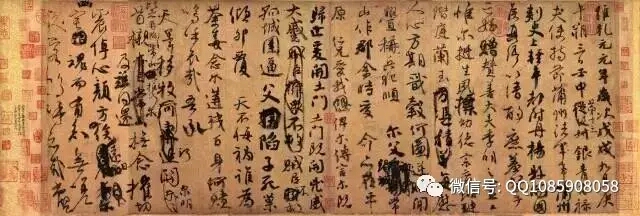 維乾元元年歲次戊戌九月庚
午朔三日壬申第十三叔銀青光祿
夫使持節蒲州諸軍事蒲州
刺史上輕車都尉丹楊縣開國
侯真卿以清酌庶羞祭于
亡姪贈贊善大夫季明
惟爾挺生夙標幼德宗廟瑚璉
階庭蘭玉每慰
人心方期戩穀何圖逆賊間
釁稱兵犯順 爾父
常山作郡余時受命亦在平
原仁兄愛我俾爾傳言爾既
歸止爰開土門土門既開凶威
大蹙賊臣不救
孤城圍逼父陷子死巢
傾卵覆天不悔禍誰為
荼毒念爾遘殘百身何贖
嗚乎哀哉吾承
天澤移牧河關泉明
首櫬及茲同還撫念摧切
震悼心顏方俟
魂而有知無嗟
久客嗚呼哀哉尚饗
微信号: QQ1085908058